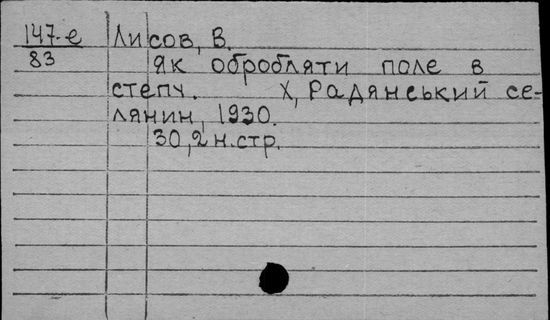 147-е Лисов, В.
83 Як обробляти поле в
степу. Х, Радянський се-
лянин, 1930.
30, 2 н.стр.